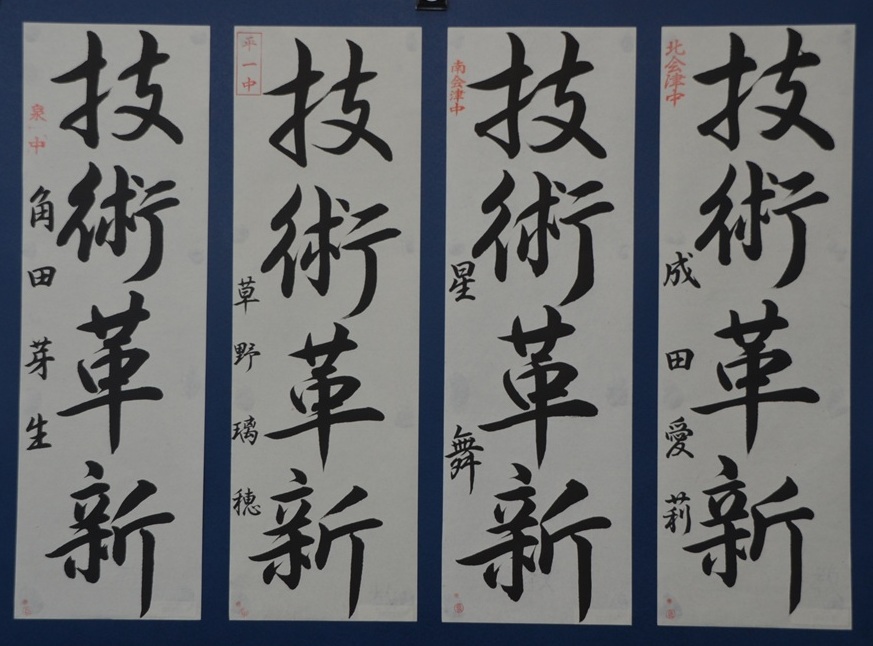 北会津中
技術革新
成田愛莉
南会津中
技術革新
星舞
平一中
技術革新
草野璃穂
泉中
技術革新
角田芽生